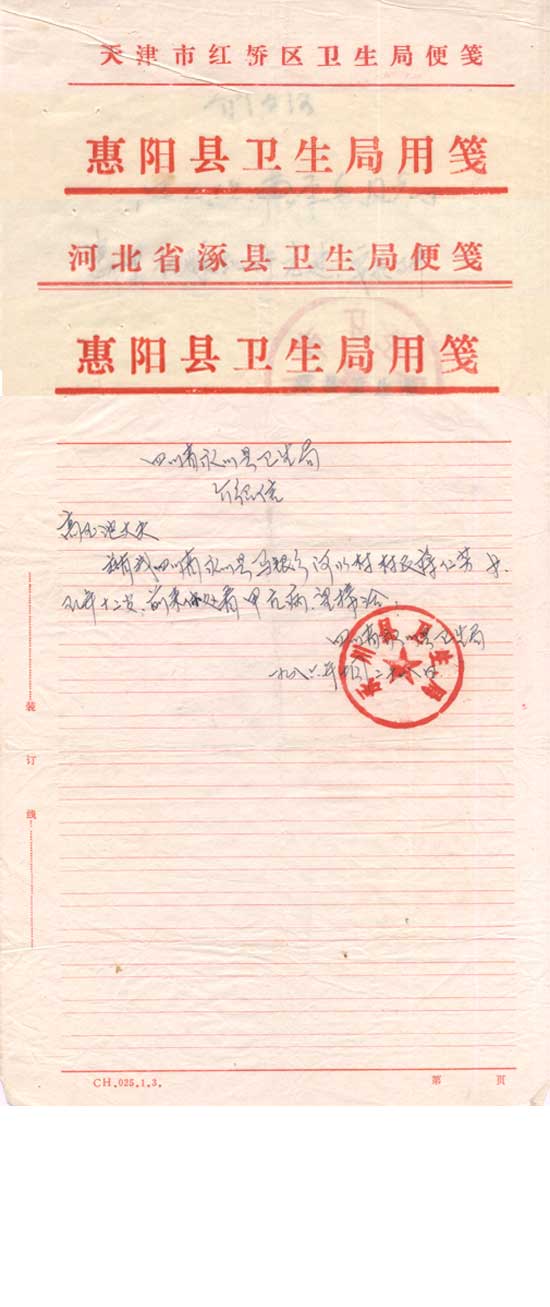 天津市红桥区卫生局便笺
惠阳县卫生局用笺
河北省涿县卫生局便笺
惠阳县卫生局用笺
四川省永川县卫生局
介绍信
大夫
兹有我四川省永川县马银乡河山村村民 仁芳 女
现年十二岁,前来你处看甲亢病,望接洽。
四川省永川县卫生局
一九八六年 月二十八日
永川县卫生局
装
订
线
CH.025.1.3.
第 页